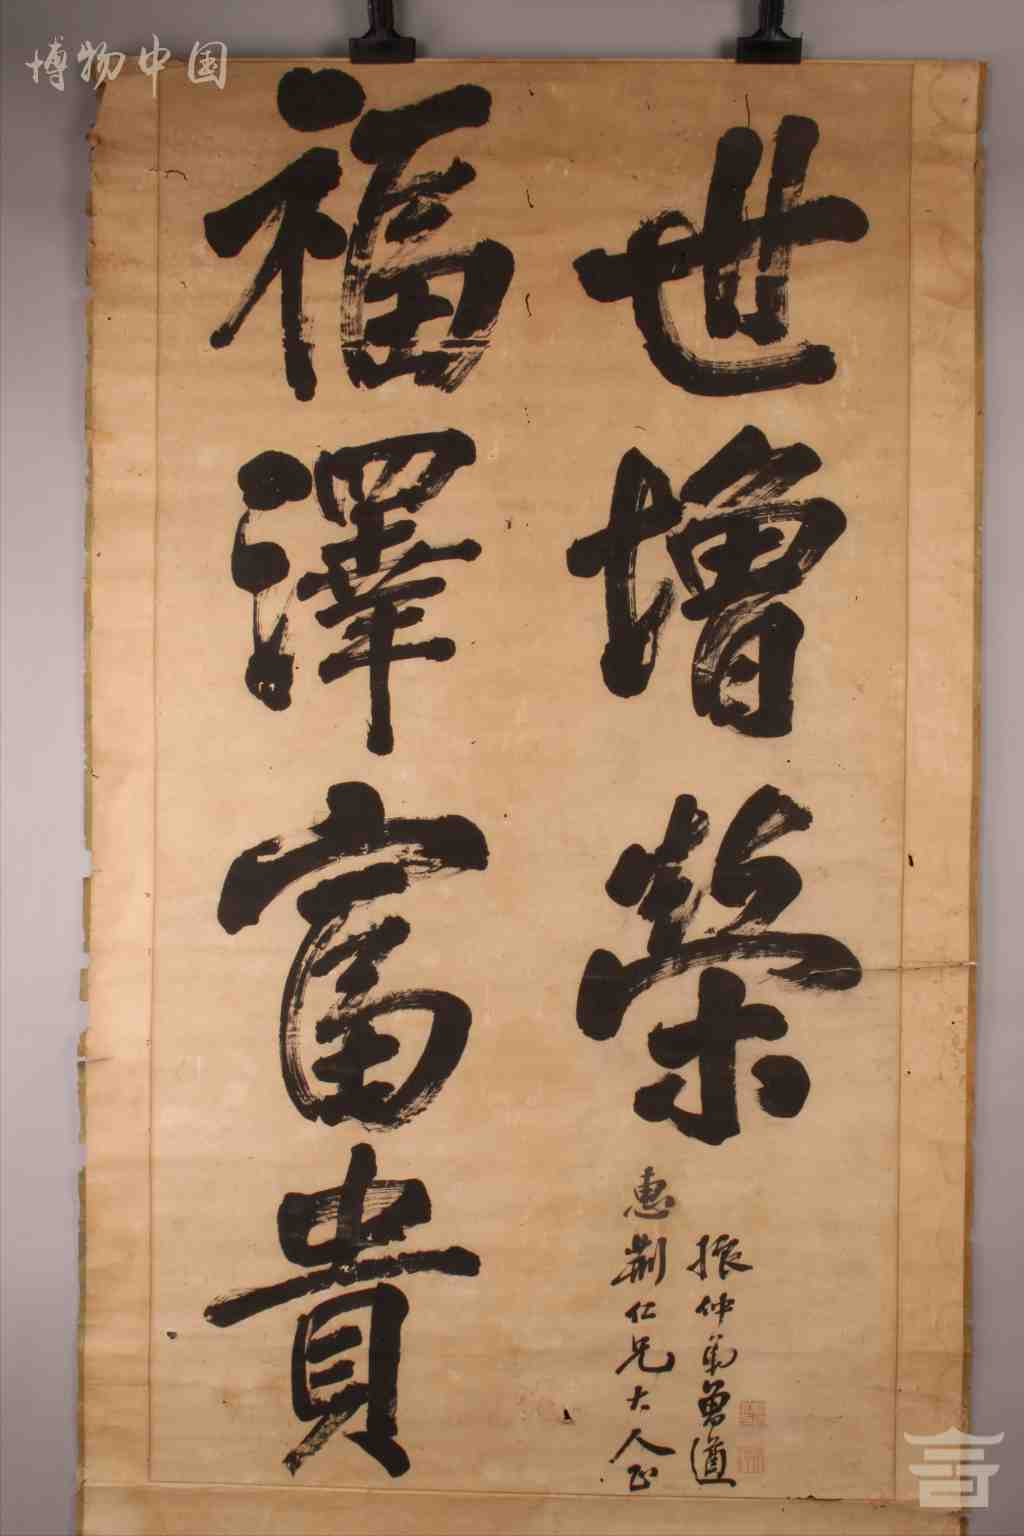 博物中国
世增榮
振仲弟曾遒
惠荆仁兄大人正
福澤富貴